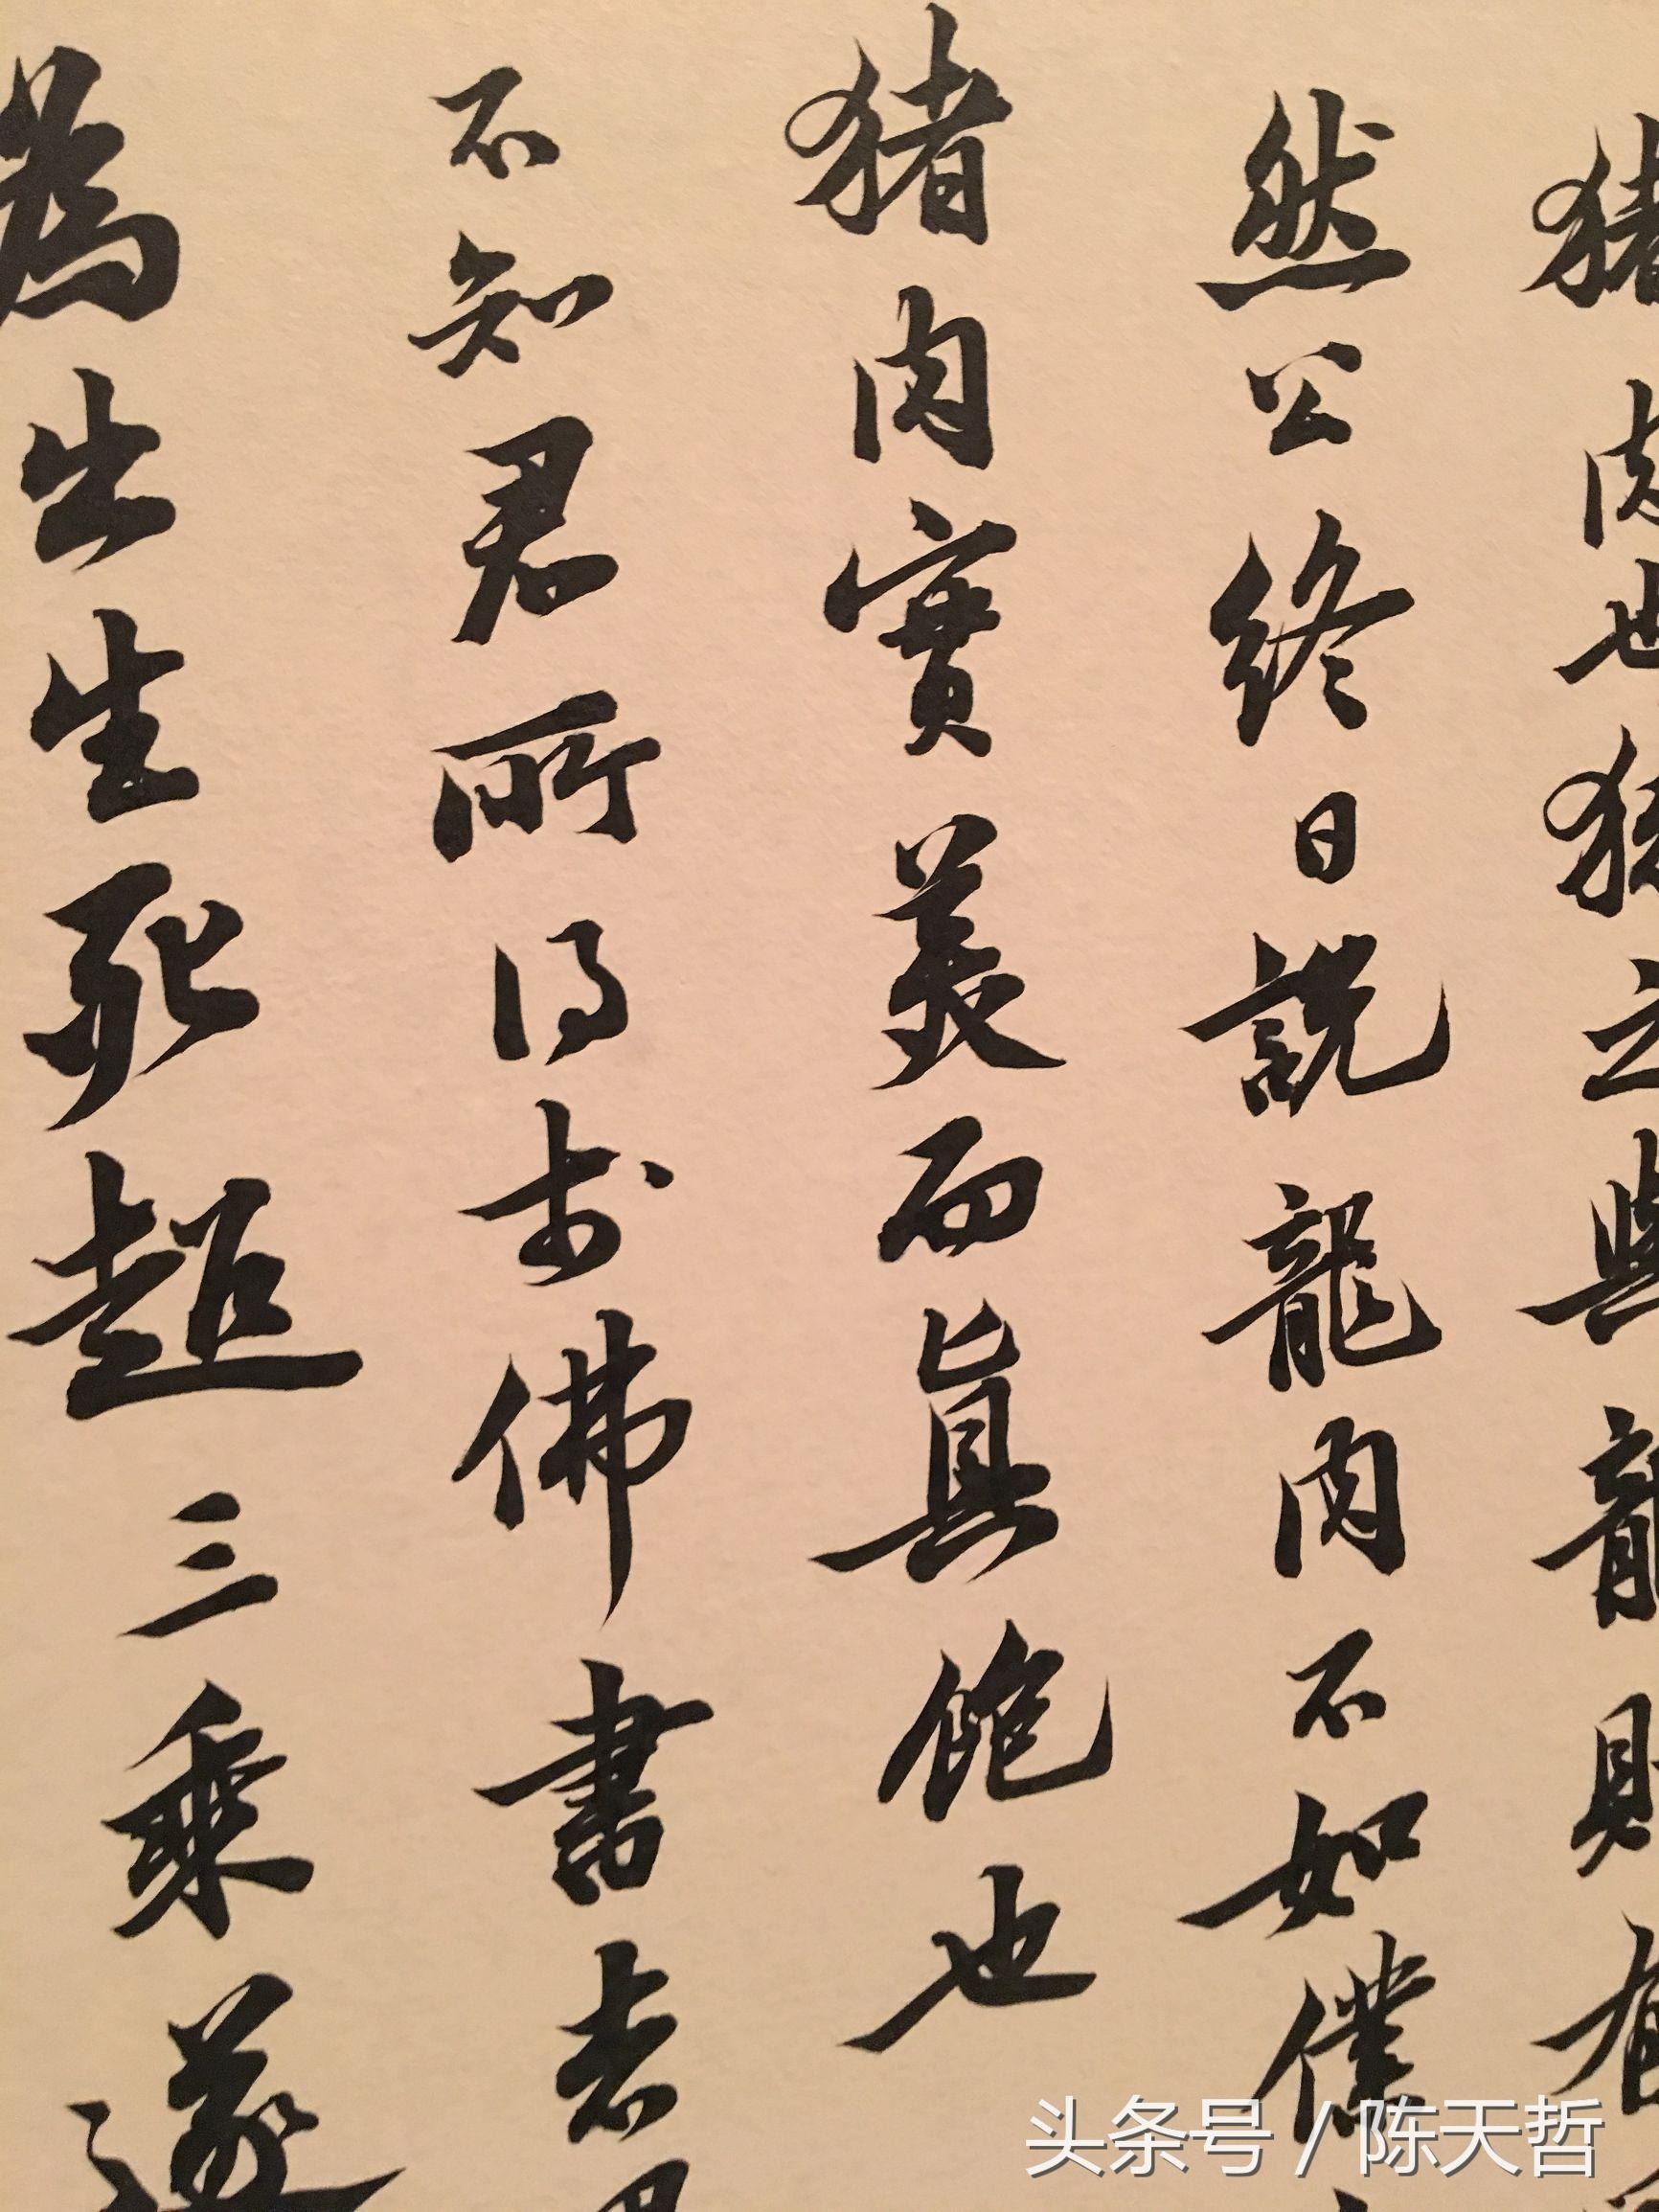 猪肉也猪之與龍則有
然公終日說龍肉不如僕
猪肉實美而真飽也
不知君所得於佛書者果
為出生死超三乘遂
头条号 / 陈天哲